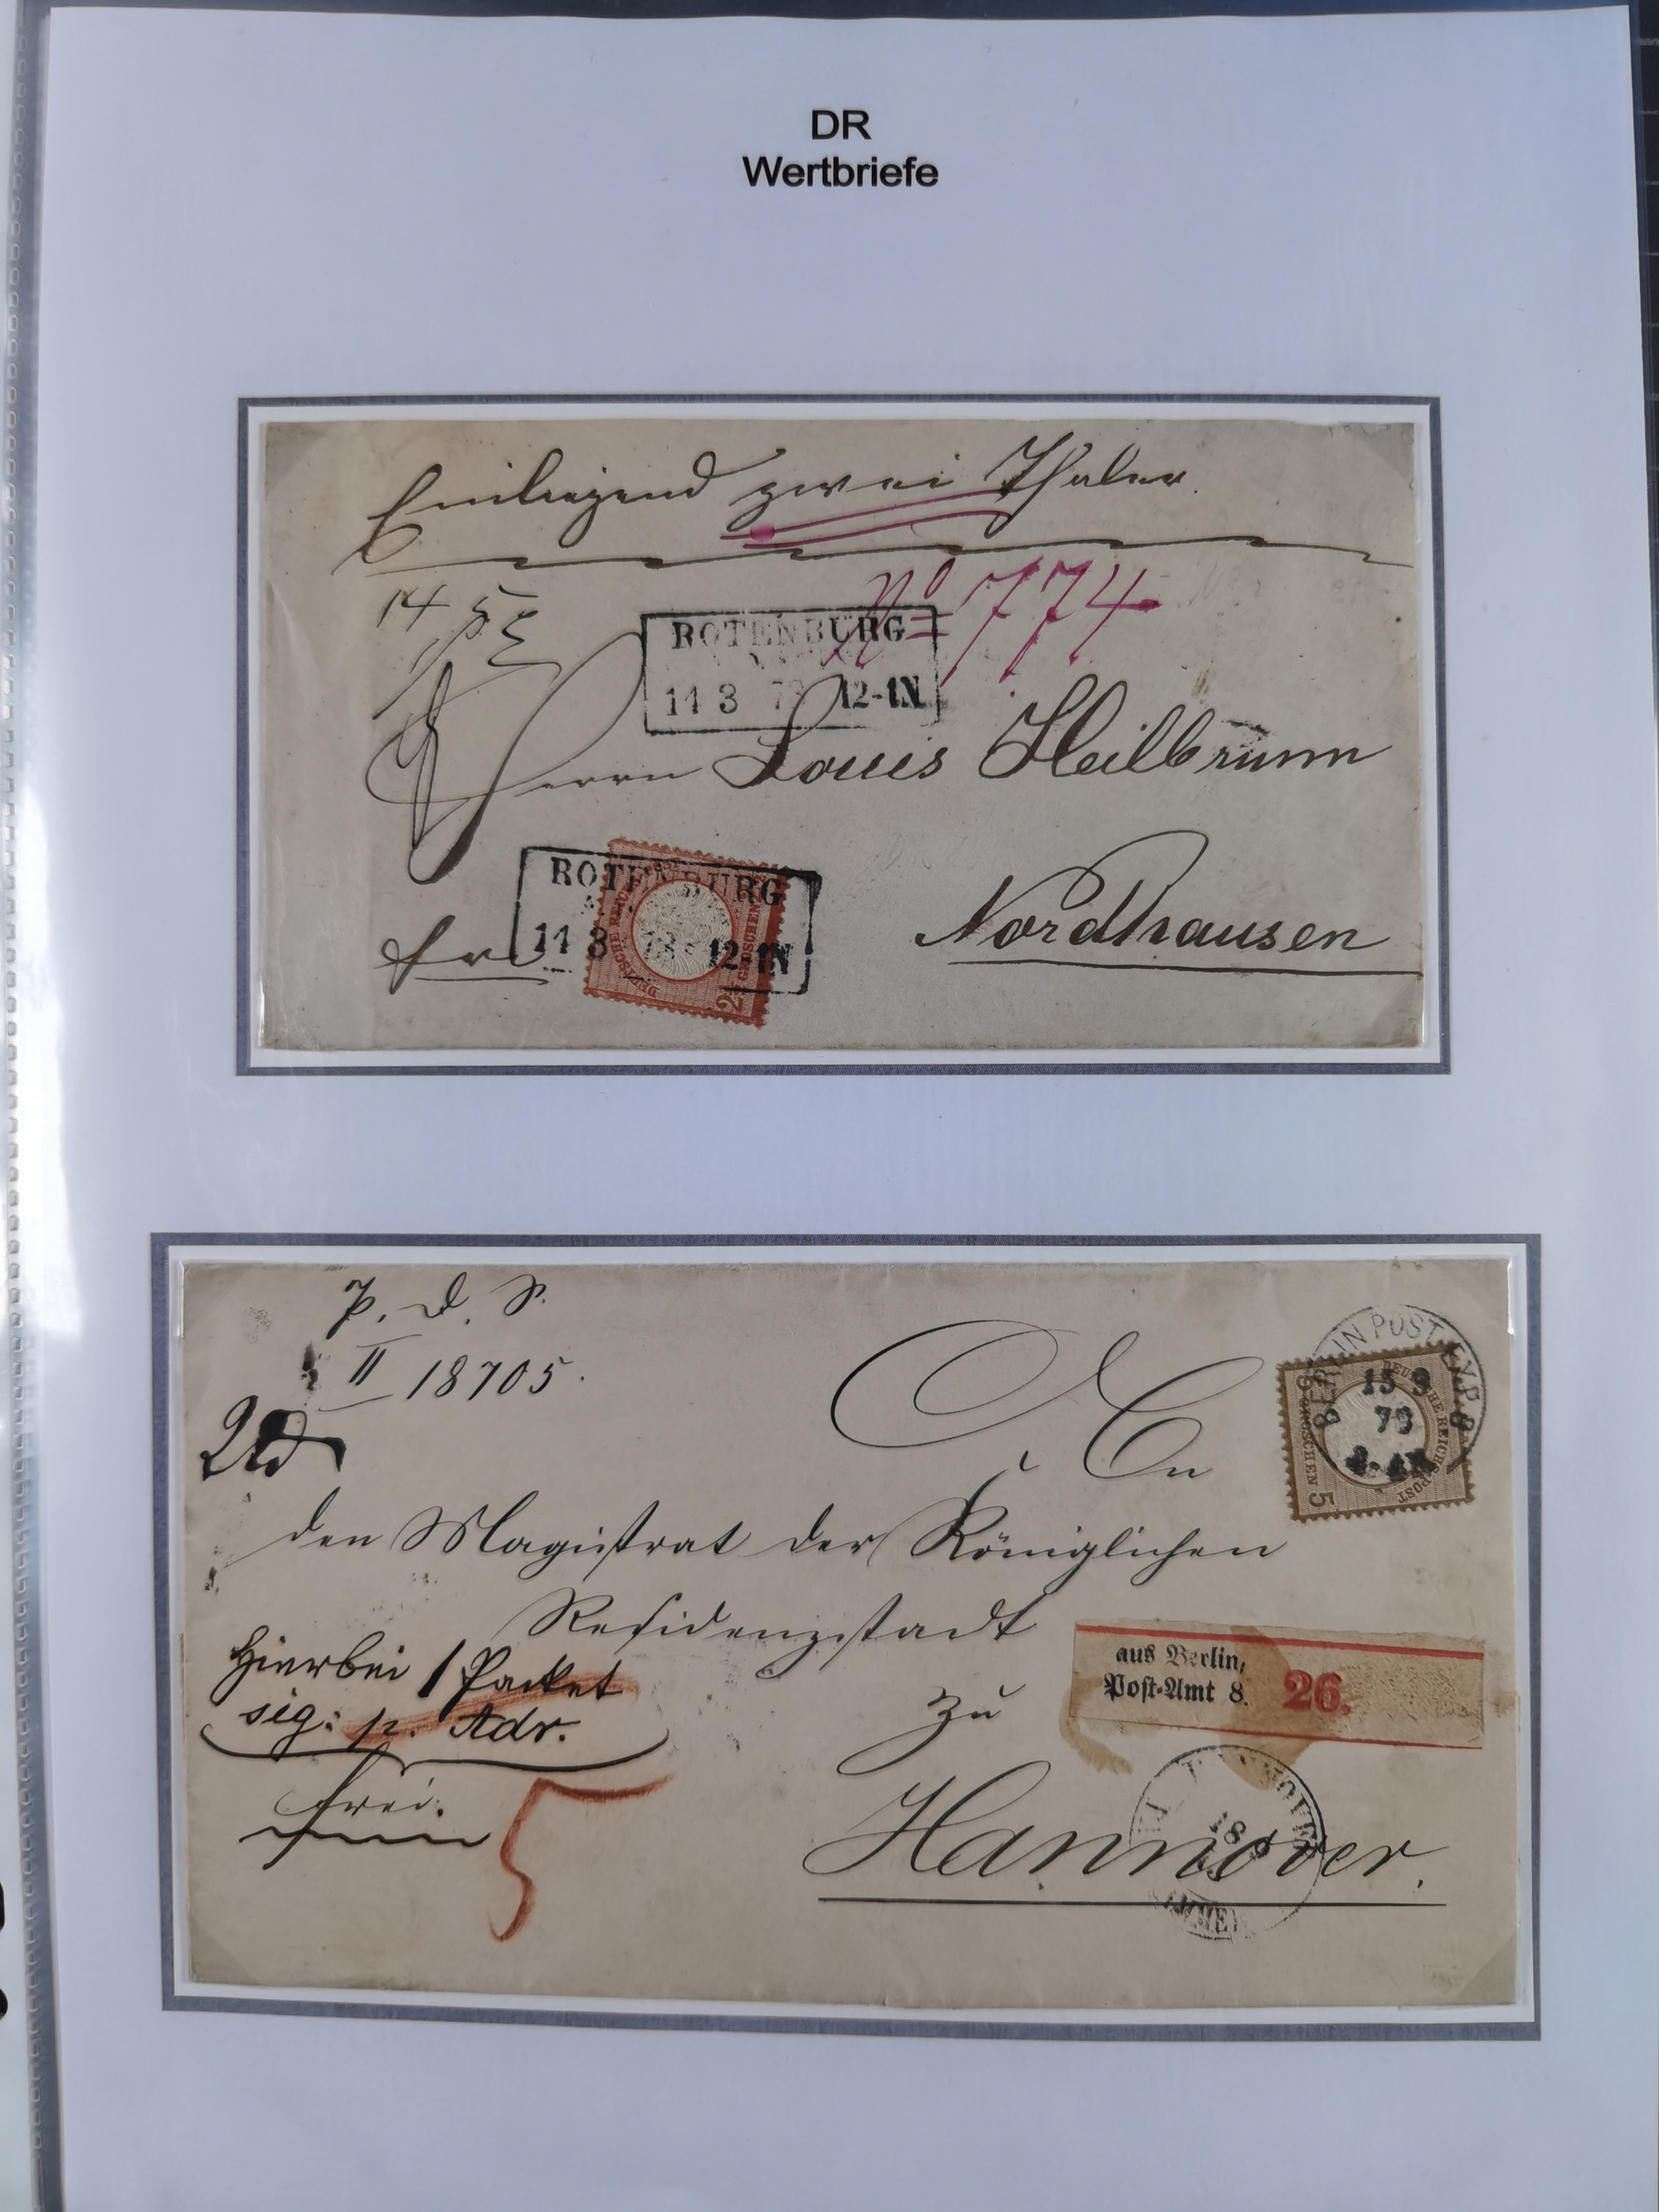 DR
Wertbriefe
Einliegend zwei Thaler.
No 774
14
ROTENBURG
11 3 12-1N
Herrn Louis Heilbrunn
ROTENBURG
11 3 73 12-1N
DEUTSCHE REICHS
GROSCHEN
2½
Nordhausen
P. D. S.
II 18705.
An
BERLIN POST EXP. 8
15 9
73
DEUTSCHE REICHS-POST
5 GROSCHEN 5
den Magistrat der Königlichen
Residenzstadt
Hierbei 1 Packet
sig: p. Adr.
frei.
5
aus Berlin,
Post-Amt 8. 26.
zu
HANNOVER
18
Hannover.